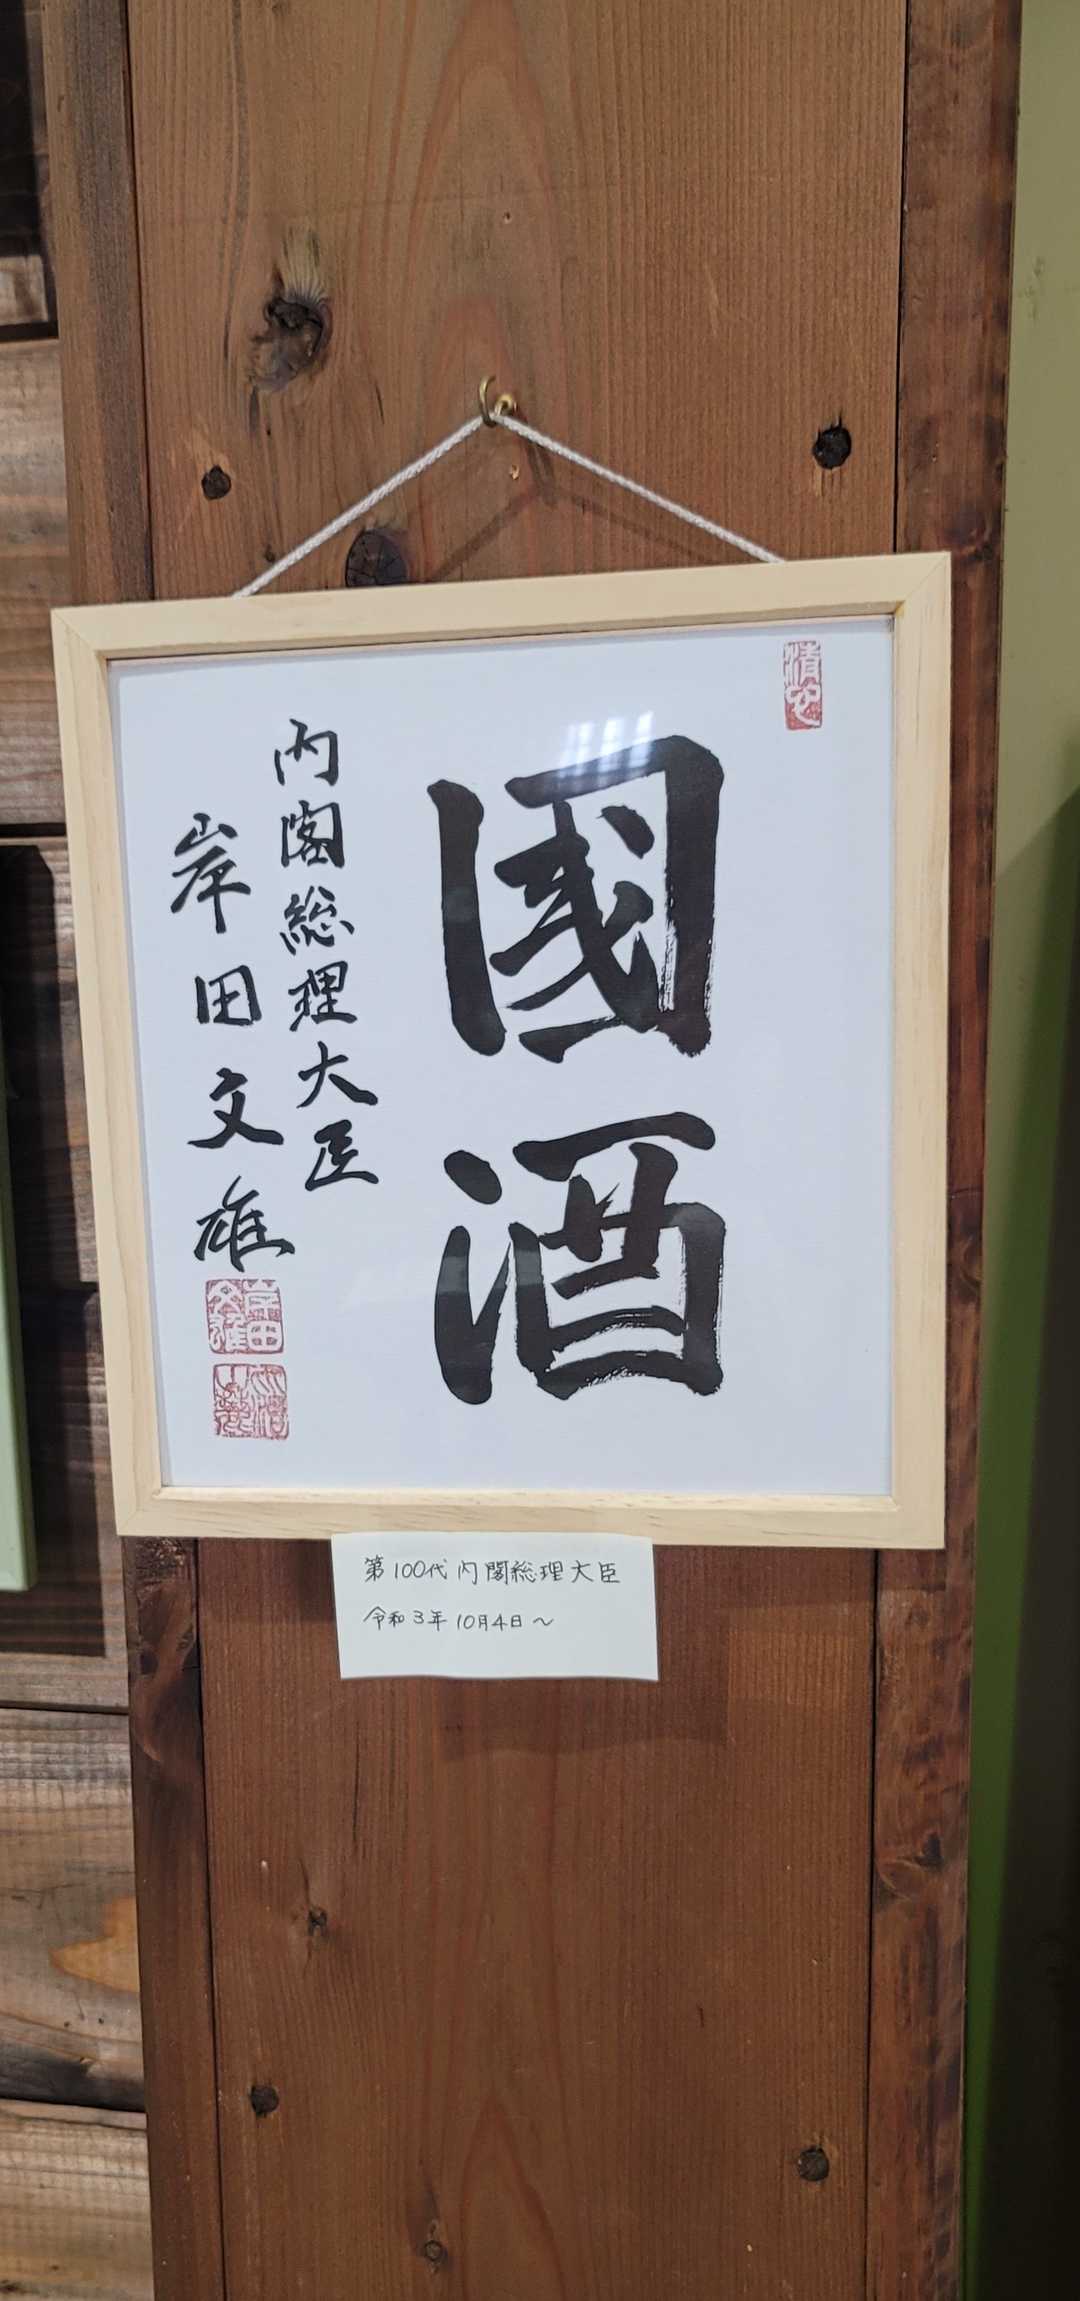 國酒
内閣総理大臣
岸田文雄
第100代 内閣総理大臣
令和3年10月4日〜